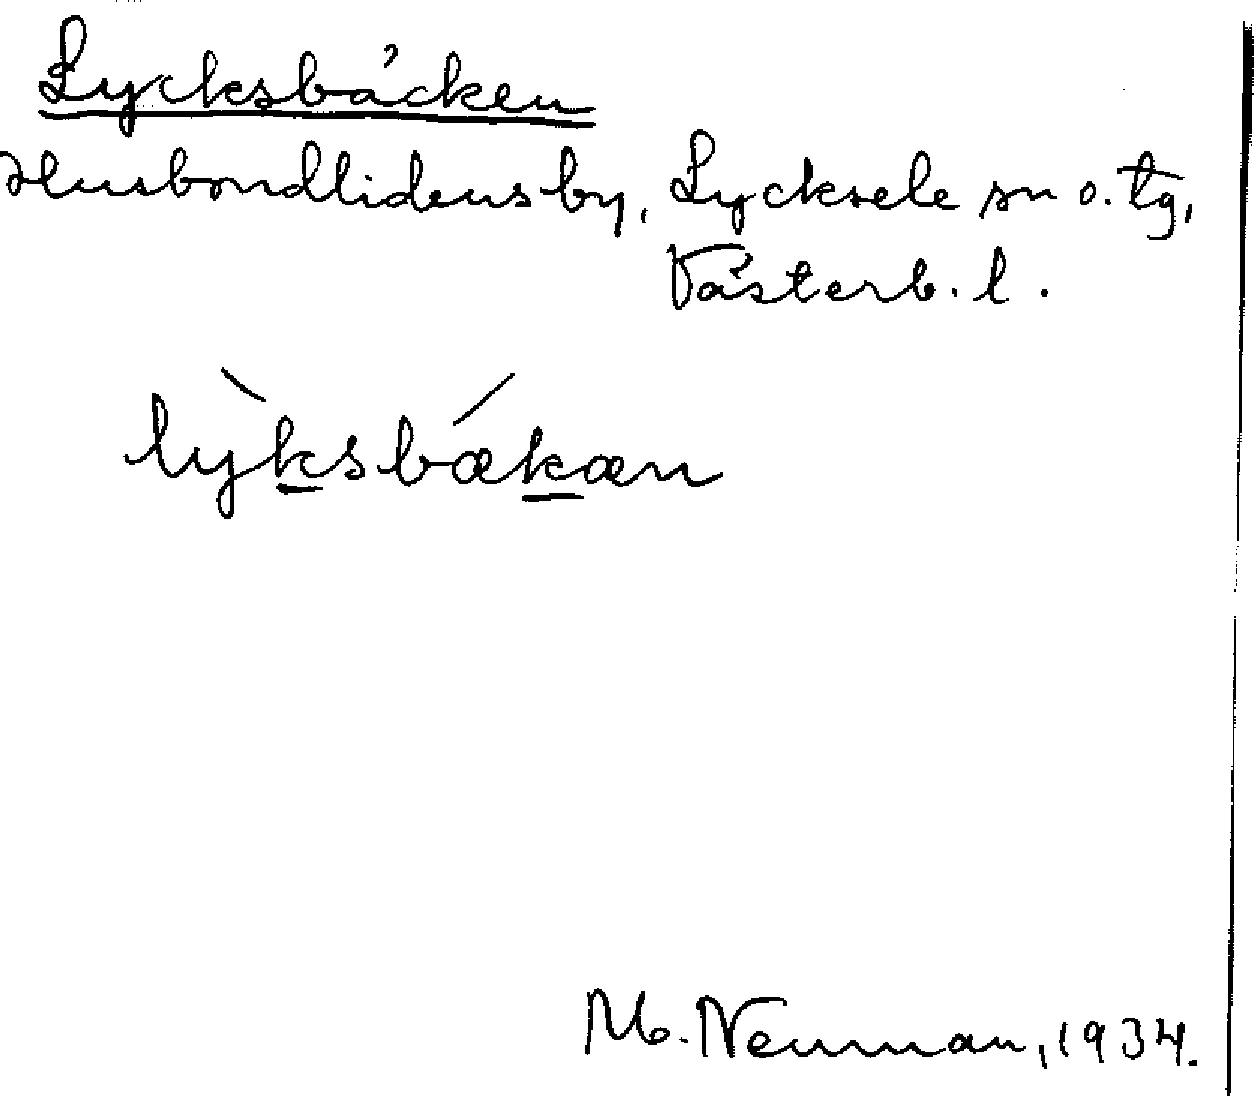 Lycksbäcken
Husbondlidens by, Lycksele sn o. tg,
Västerb. l.
lỳksbǽkæn
M. Neuman, 1934.